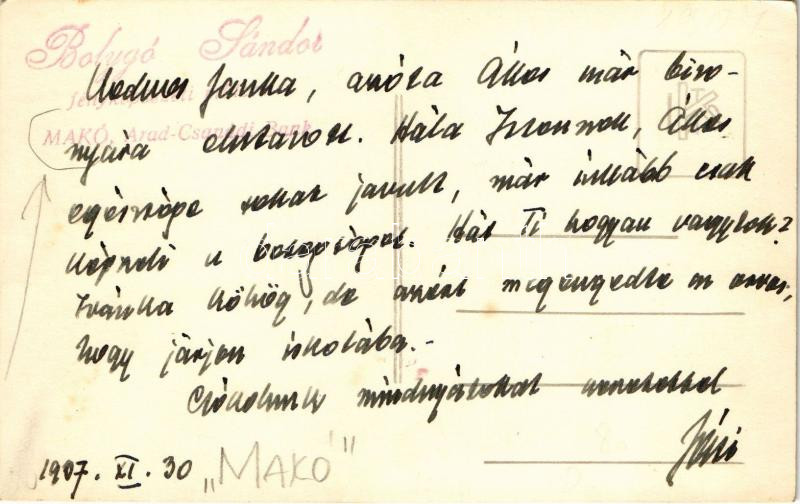 Bolygó Sándor
fényképészeti
MAKÓ, Arad-Csanádi Bank
Kedves Janka, azóta Ákos már bizo-
nyára elutazott. Hála Istennek, Ákos
egészsége sokat javult, már inkább csak
képzeli a betegségét. Hát Ti hogyan vagytok?
Ivánka köhög, de azért megengedte az orvos,
hogy járjon iskolába.-
Csókolunk mindnyájatokat szeretettel
1907. XI. 30 „MAKÓ"